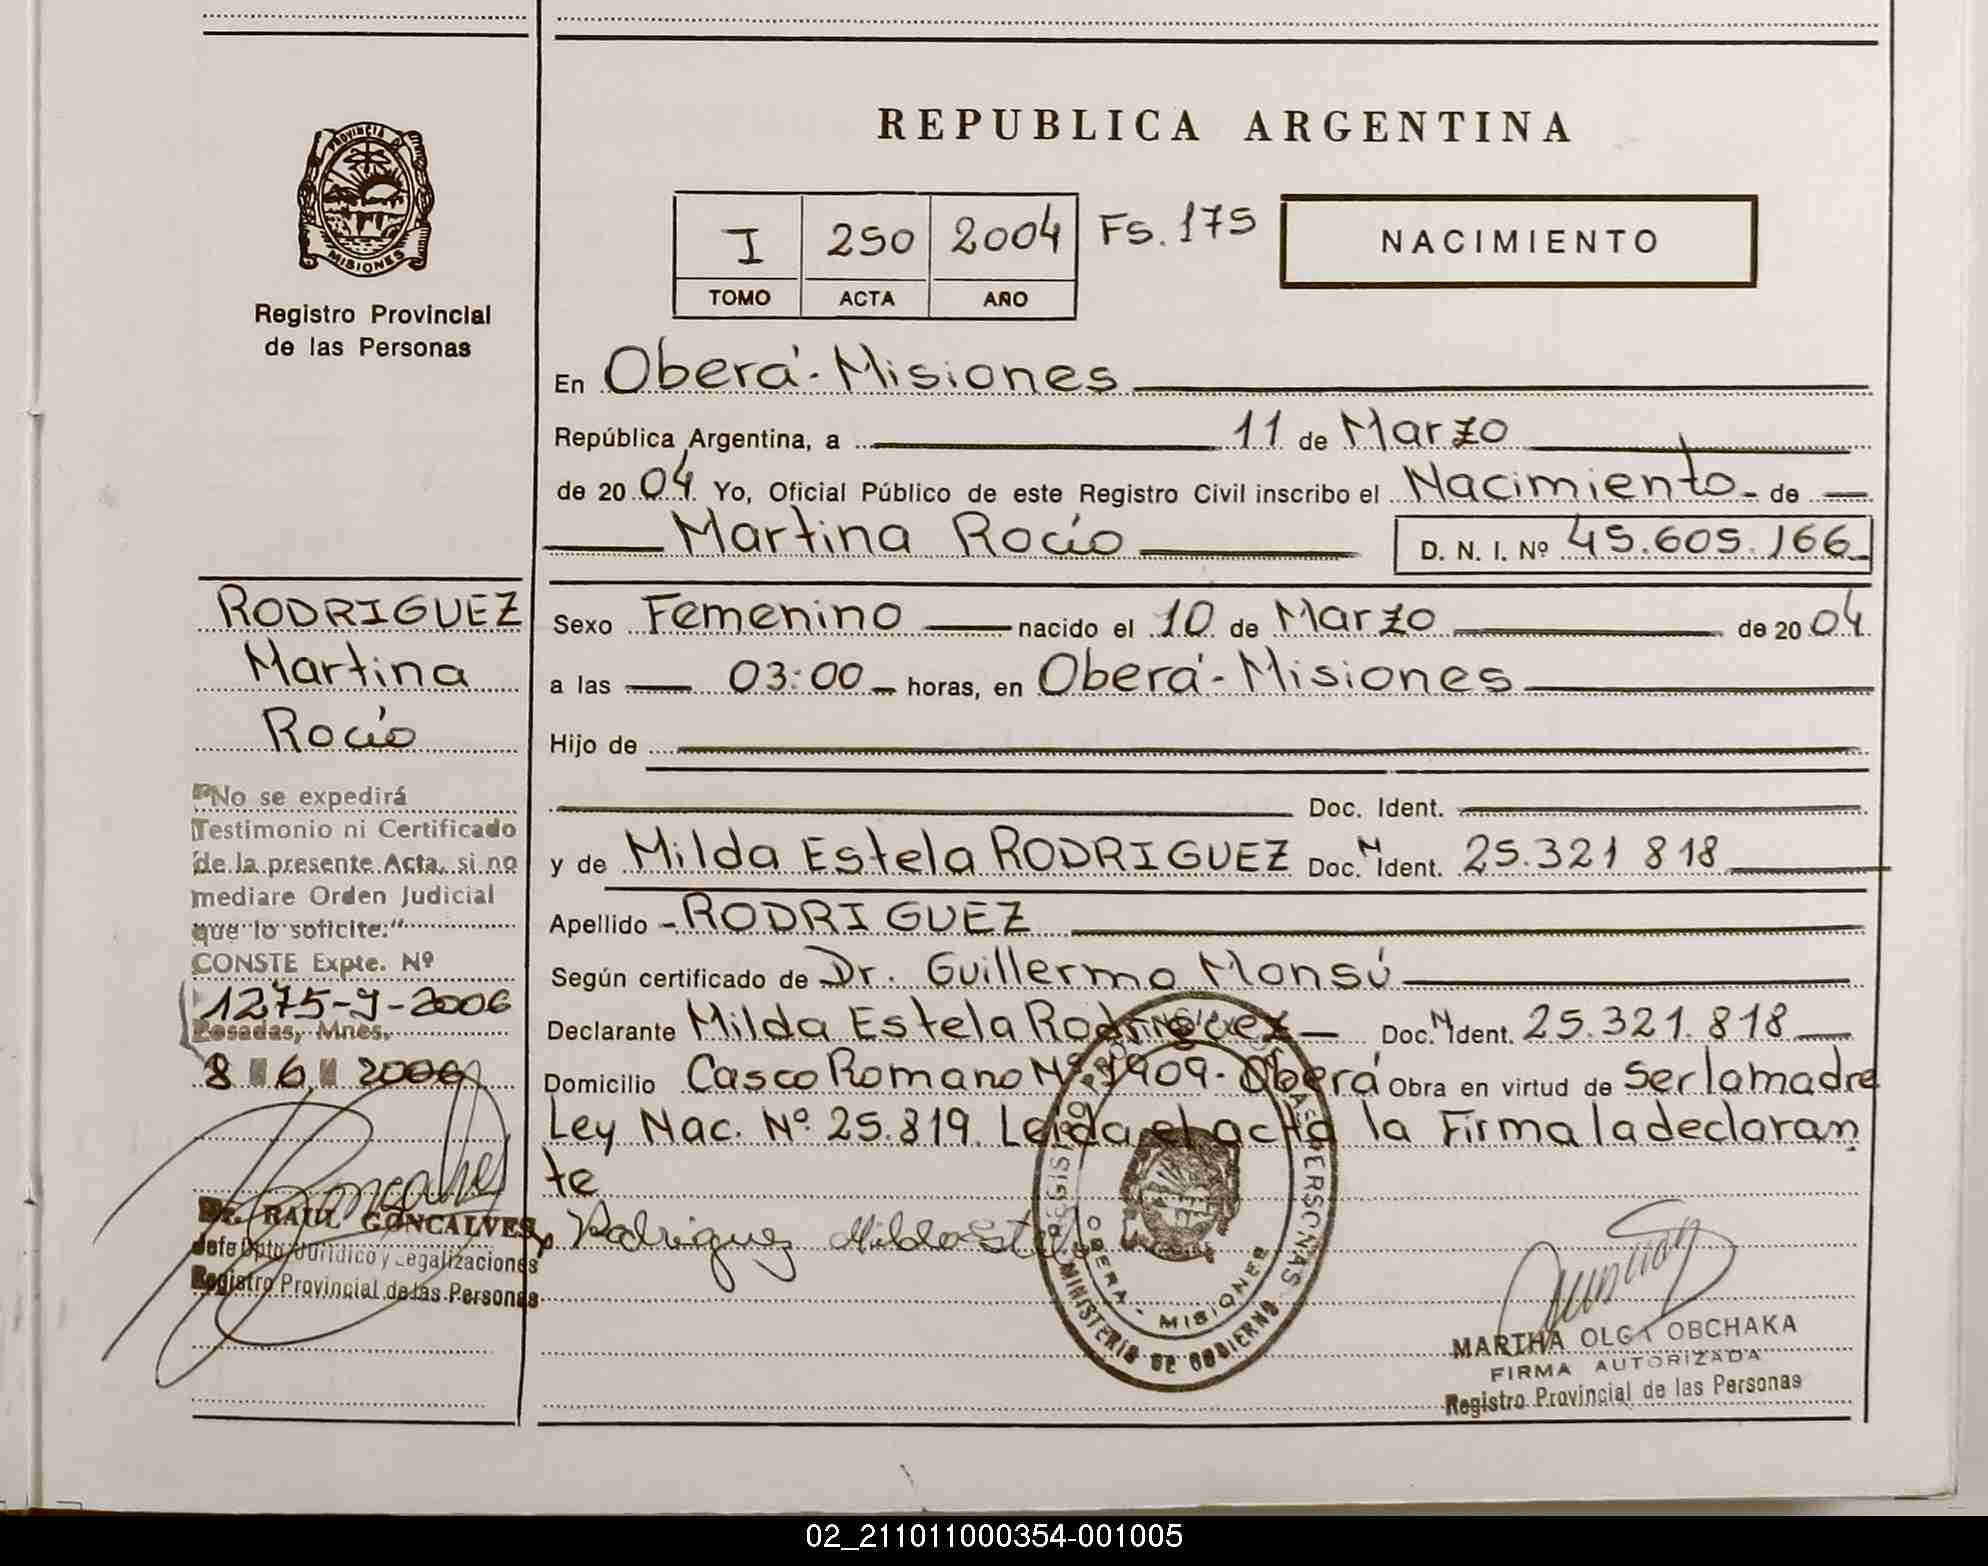 REPUBLICA ARGENTINA
PROVINCIA DE
MISIONES
Registro Provincial
de las Personas
I 250 2004 Fs. 175
TOMO ACTA AÑO
NACIMIENTO
En Oberá - Misiones
República Argentina, a 11 de Marzo
de 2004 Yo, Oficial Público de este Registro Civil inscribo el Nacimiento - de
Martina Rocío D. N. I. Nº 45.605.166
Sexo Femenino nacido el 10 de Marzo de 2004
a las 03:00 horas, en Oberá - Misiones
Hijo de
Doc. Ident.
y de Milda Estela RODRIGUEZ Doc. N Ident. 25.321 818
Apellido - RODRIGUEZ
Según certificado de Dr. Guillermo Monsú
Declarante Milda Estela Rodriguez Doc. N Ident. 25.321.818
Domicilio Casco Romano Nº 1909 - Oberá Obra en virtud de ser la madre
Ley Nac. Nº 25.819. Leida el acta la Firma la declaran
te
Rodriguez Milda Estela
RODRIGUEZ
Martina
Rocío
"No se expedirá
Testimonio ni Certificado
de la presente Acta, si no
mediare Orden Judicial
que lo solicite."
CONSTE Expte. Nº
1275-J-2006
Posadas, Mnes.
8 6 2006
Dr. RAUL GONCALVES
Jefe Dpto. Jurídico y Legalizaciones
Registro Provincial de las Personas
REGISTRO PROVINCIAL DE LAS PERSONAS
OBERA - MISIONES
MINISTERIO DE GOBIERNO
MARTHA OLGA OBCHAKA
FIRMA AUTORIZADA
Registro Provincial de las Personas
02_211011000354-001005